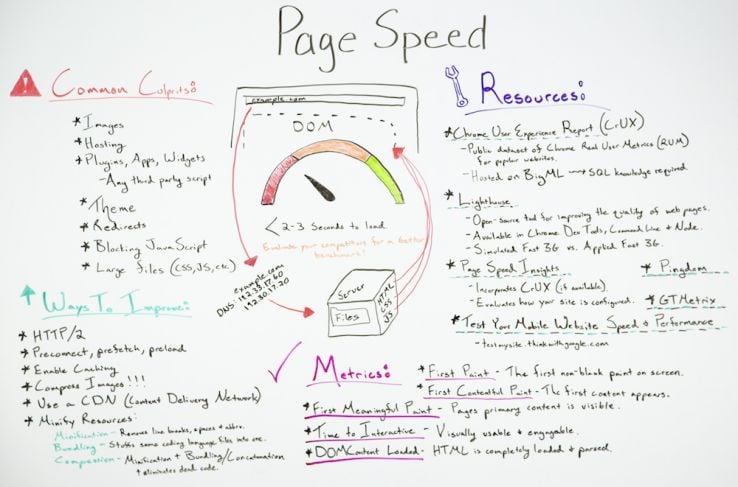 Page Speed
Common Culprits:
* Images
* Hosting
* Plugins, Apps, Widgets
- Any third party script
* Theme
* Redirects
* Blocking JavaScript
* Large Files (CSS, JS, etc.)
Ways To Improve:
* HTTP/2
* Preconnect, prefetch, preload
* Enable Caching
* Compress Images!!!
* Use a CDN (Content Delivery Network)
* Minify Resources:
Minification - Removes line breaks, spaces + abbrv.
Bundling - Stuffs same coding language files into one.
Compression - Minification + Bundling/Concatenation
+ eliminates dead code.
example.com
DOM
< 2-3 Seconds to load
Evaluate your competitors for a better
benchmark!
example.com
DNS: 192.33.17.60
192.30.17.20
Server
Files
HTML
CSS
JS
Resources:
* Chrome User Experience Report (CrUX)
- Public dataset of Chrome Real User Metrics (RUM)
for popular websites.
- Hosted on BigML SQL knowledge required
* Lighthouse
- Open-source tool for improving the quality of web pages.
- Available in Chrome Dev Tools, Command Line + Node.
- Simulated Fast 3G vs. Applied Fast 3G.
* Page Speed Insights
- Incorporates CrUX (if available)
- Evaluates how your site is configured.
* Pingdom
* GTMetrix
* Test Your Mobile Website Speed & Performance
- testmysite.thinkwithgoogle.com
Metrics:
* First Paint - The first non-blank paint on screen.
* First Contentful Paint - The first content appears.
* First Meaningful Paint - Pages primary content is visible.
* Time to Interactive - Visually usable & engageable.
* DOMContent Loaded - HTML is completely loaded & parsed.